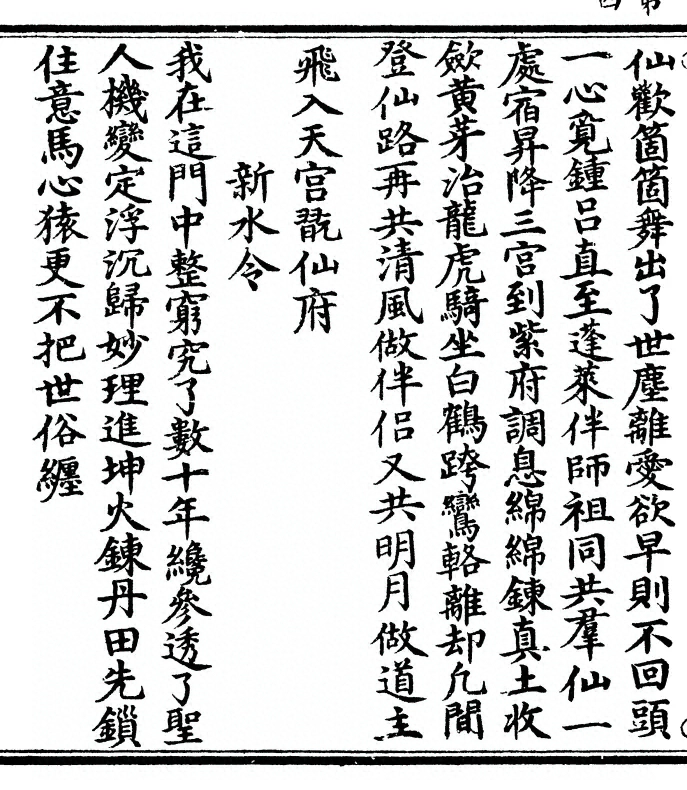 仙歡箇箇舞出了世塵離愛欲早則不回頭
一心覓鍾呂直至蓬萊伴師祖同共羣仙一
處宿昇降三宮到紫府調息綿綿鍊真土收
歛黃芽治龍虎騎坐白鶴跨鸞輅離却凢間
登仙路再共清風做伴侣又共明月做道主
飛入天宮翫仙府
新水令
我在這門中整窮究了數十年纔參透了聖
人機變定浮沉歸妙理進坤火鍊丹田先鎖
住意馬心猿更不把世俗纏